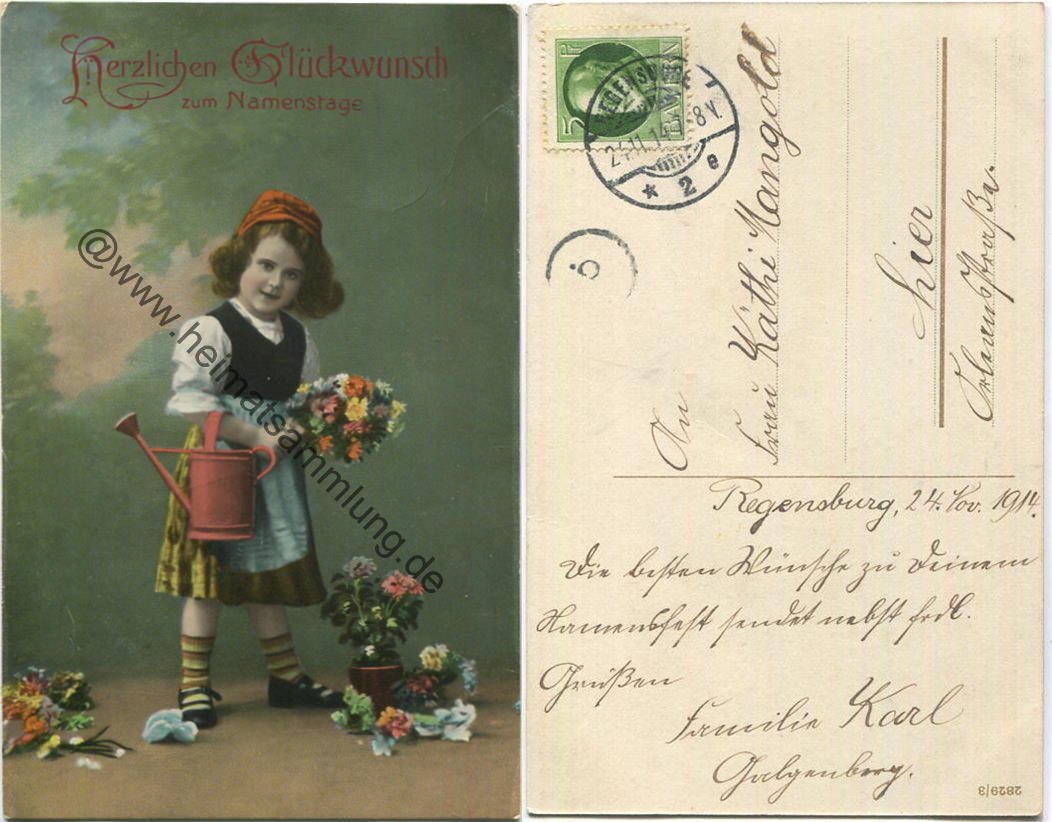 Herzlichen Glückwunsch
zum Namenstage
@www.heimatsammlung.de
5 Pf
BAYERN
REGENSBURG
24.11.14. 7-8 V.
* 2 e
An
Frau Käthi Mangold
hier
Regensburg, 24. Nov. 1914.
Die besten Wünsche zu Deinem
Namensfest sendet nebst frdl.
Grüßen
Familie Karl
Galgenberg.
2829/3